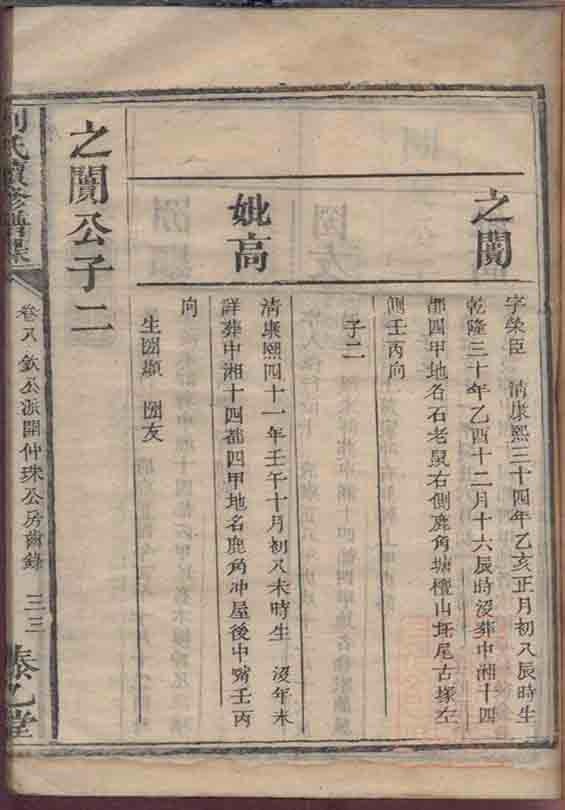 之闓
字榮臣 清康熙三十四年乙亥正月初八辰時生
乾隆三十年乙酉十二月十六辰時沒葬中湘十四
都四甲地名石老鼠右側鹿角塘檀山坵尾古塚左
側壬丙向
子二
妣高
清康熙四十一年壬午十月初八未時生 沒年未
詳葬中湘十四都四甲地名鹿角冲屋後中嘴壬丙
向
生國顯 國友
之闓公子二
劉氏續修譜
卷八 欽公派開仲珠公房齒錄 三三 泰乙堂